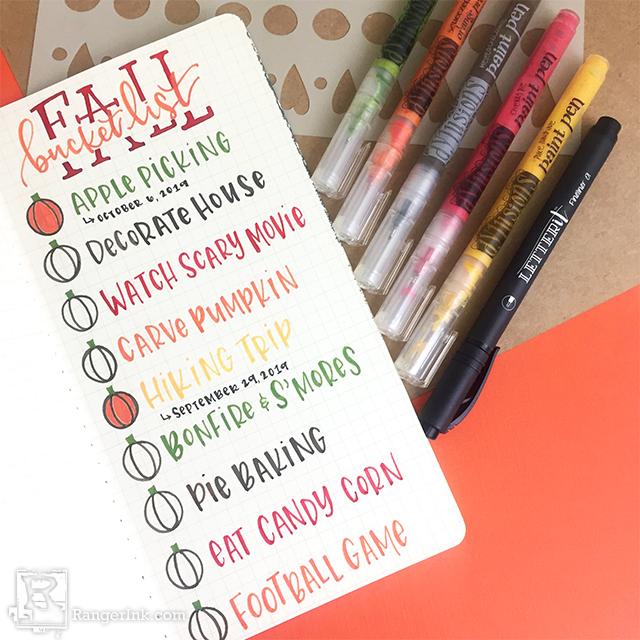 FALL
bucket list
APPLE PICKING
↳ OCTOBER 6, 2019
DECORATE HOUSE
WATCH SCARY MOVIE
CARVE PUMPKIN
HIKING TRIP
↳ SEPTEMBER 29, 2019
BONFIRE & S'MORES
PIE BAKING
EAT CANDY CORN
FOOTBALL GAME
paint pen
paint pen
paint pen
paint pen
LETTER IT
R
RangerInk.com